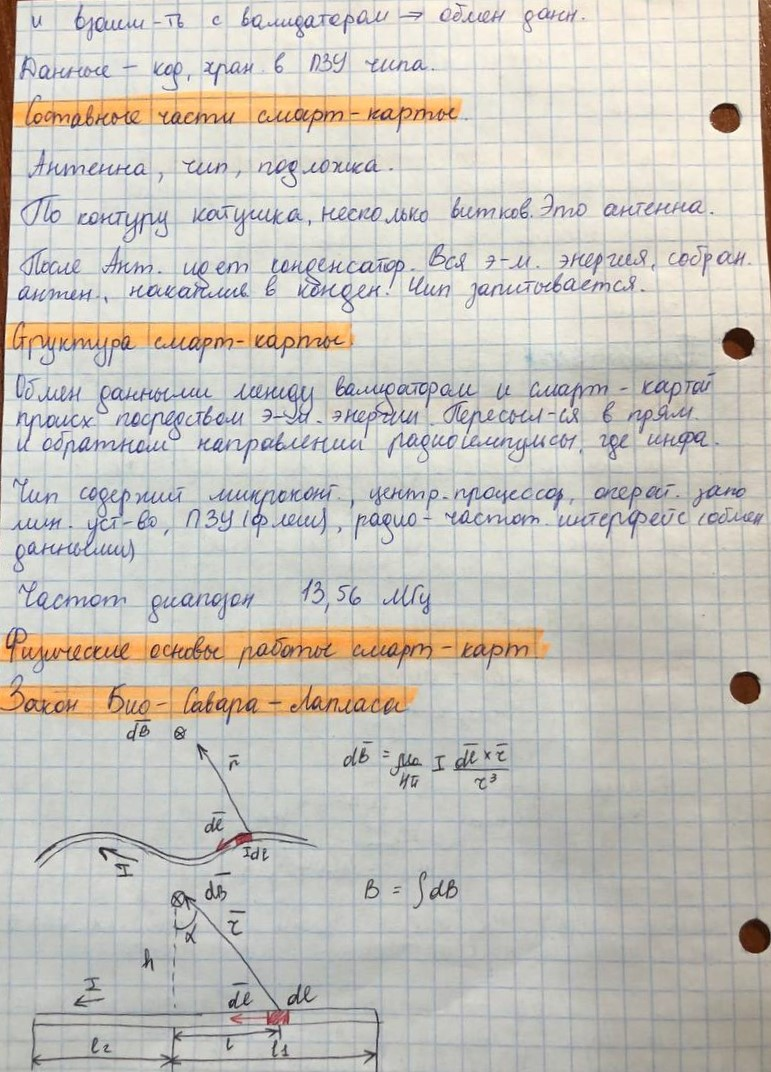 и взаим-ть с валидатором → обмен данн.
Данные – код, хран. в ПЗУ чипа.
Составные части смарт-карты.
Антенна, чип, подложка.
По контуру катушка, несколько витков. Это антенна.
После Ант. идет конденсатор. Вся э-м. энергия, собран.
антен., накаплив в конден. Чип запитывается.
Структура смарт-карты
Обмен данными между валидатором и смарт-картой
происх посредством э-м. энергии. Пересыл-ся в прям.
и обратном направлении радиоимпульсы, где инфа.
Чип содержит микроконт., центр. процессор, операт. запо
мин. уст-во, ПЗУ (флеш), радио-частот. интерфейс (обмен
данными)
Частот диапозон 13,56 МГц
Физические основы работы смарт-карт
Закон Био-Савара-Лапласа
dB̅ ⊗
r̅
dB̅ = μ₀/4π I dl̅ × r̅ / r³
dl̅
I dl
I
dB̅
B = ∫dB
α
r̅
h
I
dl̅ dl
l₂ l l₁